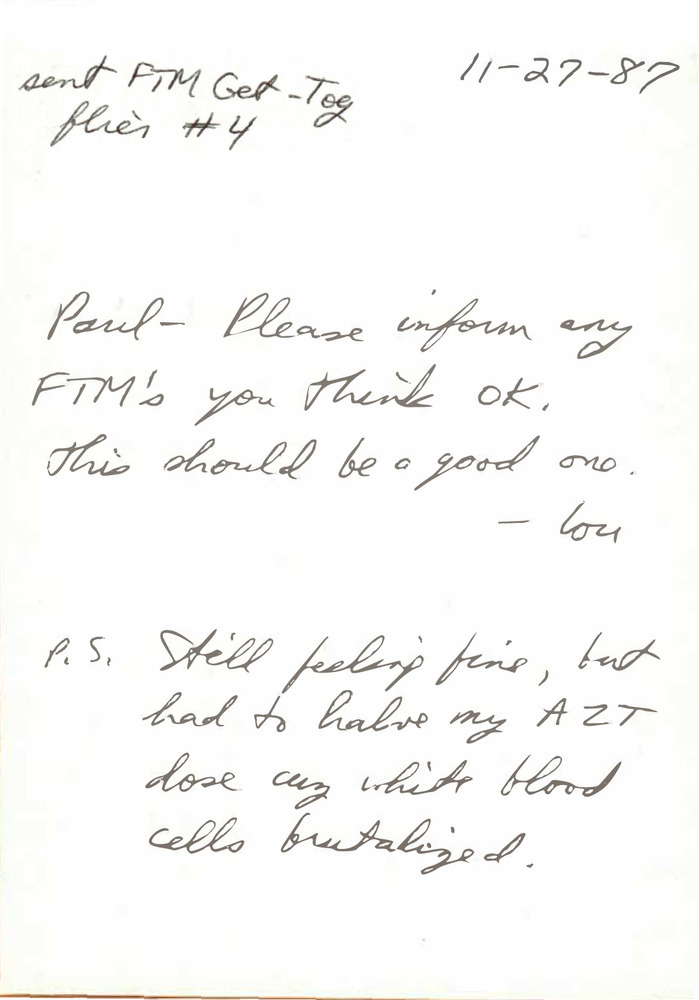 sent FTM Get-Tog
flier #4
11-27-87
Paul- Please inform any
FTM's you think OK.
This should be a good one.
- Lou
P.S. Still feeling fine, but
had to halve my AZT
dose cuz white blood
cells brutalized.